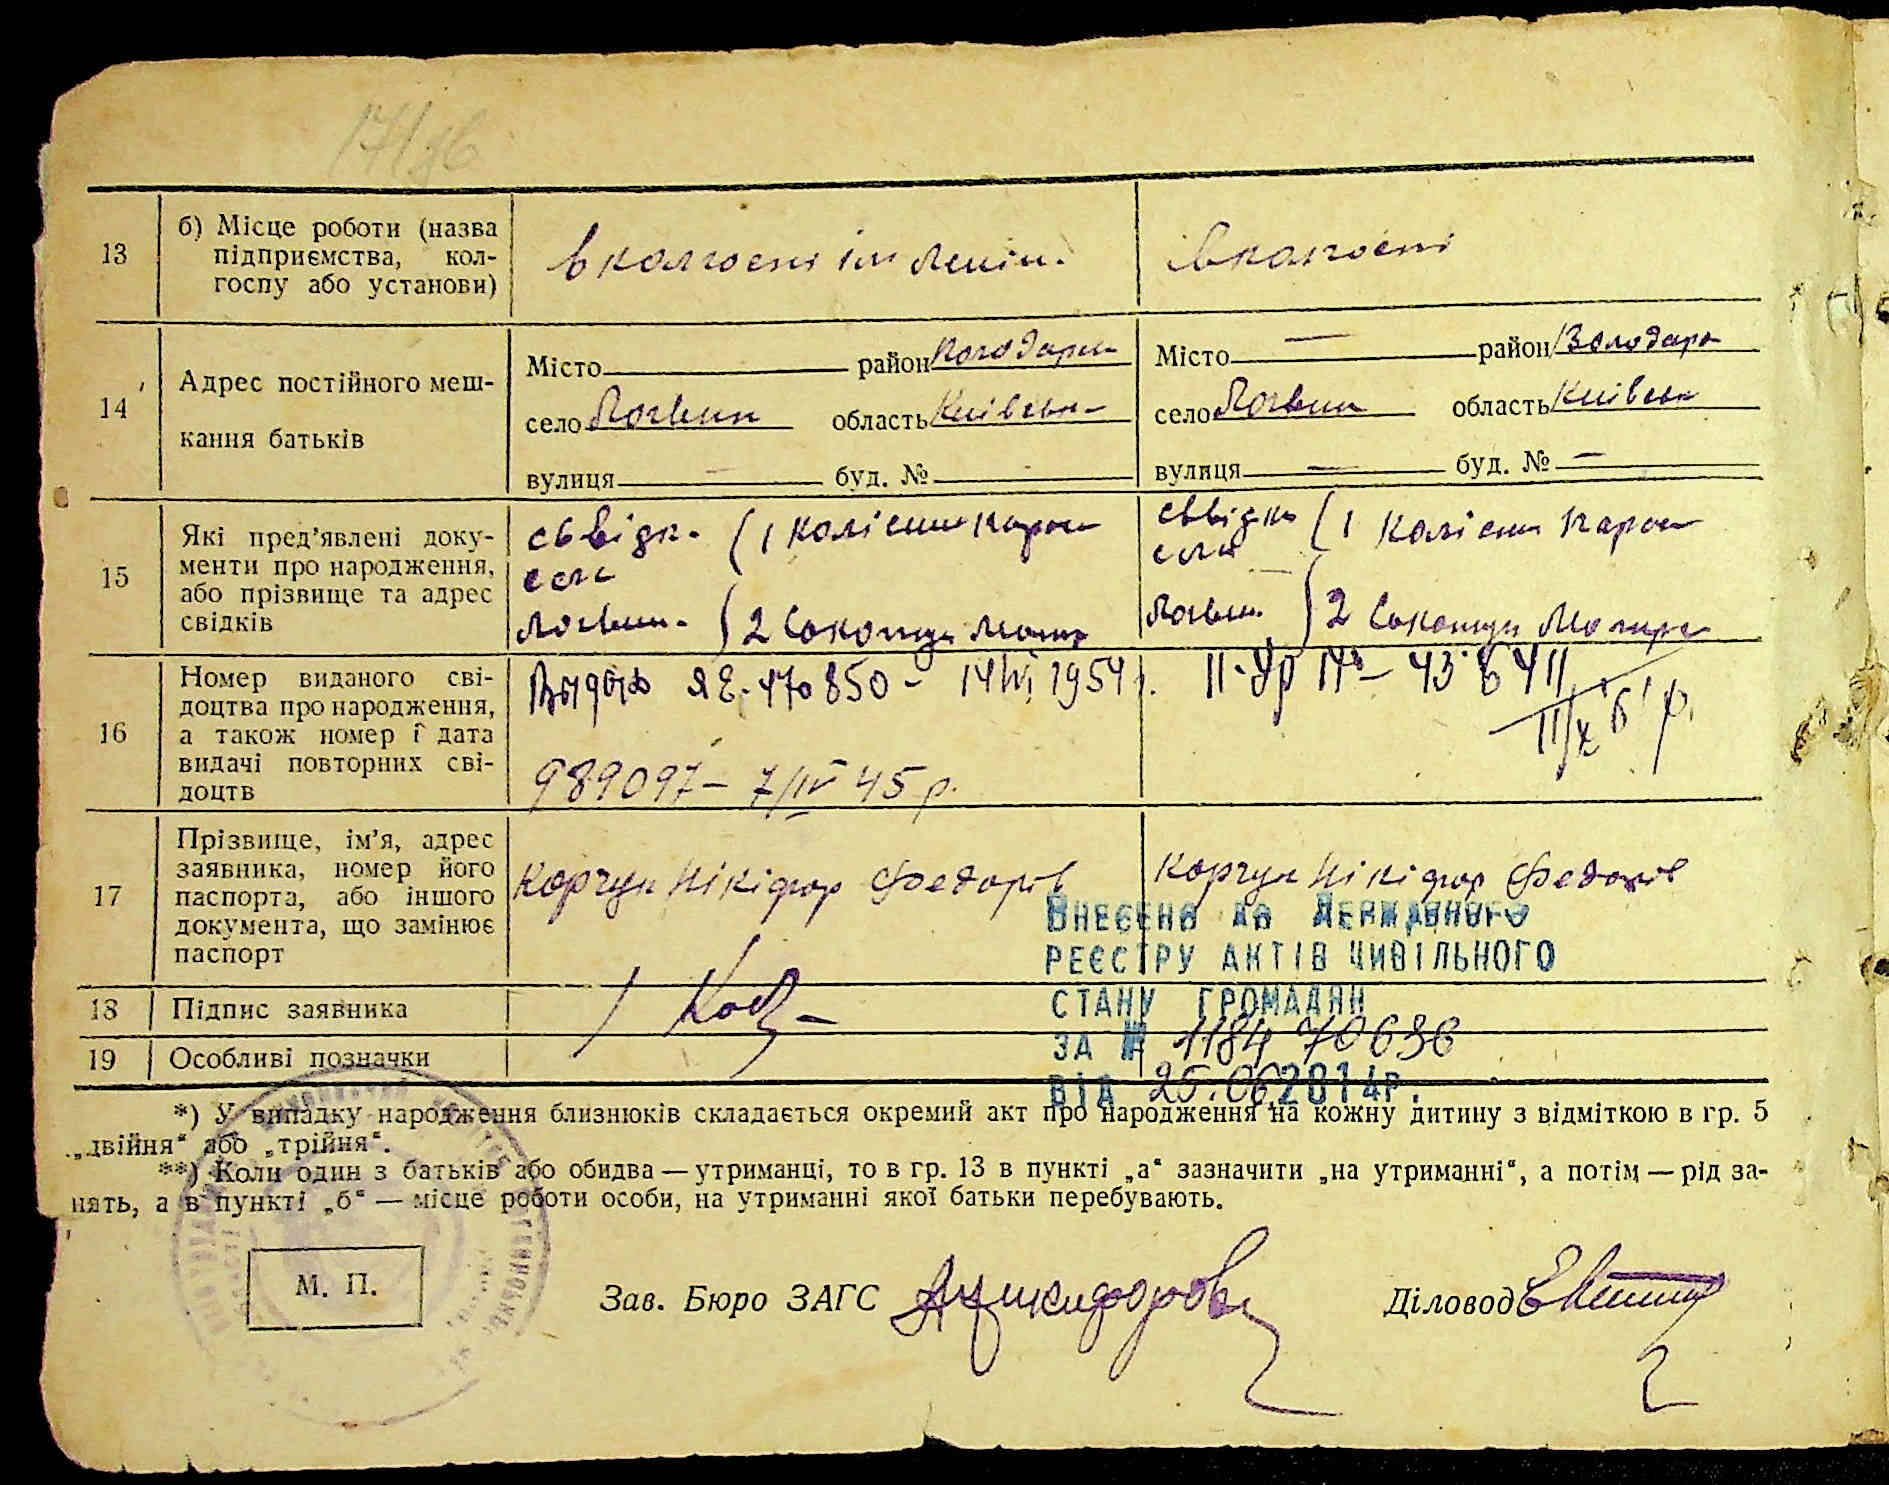 13
б) Місце роботи (назва
підприємства, кол-
госпу або установи)
в колгоспі ім Леніна
в колгоспі
14
Адрес постійного меш-
кання батьків
Місто район Володарськ
село Логвин область Київськ
вулиця — буд. №
Місто — район Володарс
село Логвин область Київськ
вулиця — буд. № —
15
Які пред’явлені доку-
менти про народження,
або прізвище та адрес
свідків
свідк. (1 Колісник
села
Логвин. 2
свідки (1 Колісник
села
Логвин. 2
16
Номер виданого сві-
доцтва про народження,
а також номер і дата
видачі повторних сві-
доцтв
ЯЕ-470850- 14/VI 1954 р.
989097- 7/IV 45 р.
17
Прізвище, ім’я, адрес
заявника, номер його
паспорта, або іншого
документа, що замінює
паспорт
Корчун Нікіфор Федорів
Корчун Нікіфор Федорів
ВНЕСЕНО ДО ДЕРЖАВНОГО
РЕЄСТРУ АКТІВ ЦИВІЛЬНОГО
СТАНУ ГРОМАДЯН
ЗА № 118470636
ВІД 25.06.2014Р.
18 Підпис заявника
19 Особливі позначки
*) У випадку народження близнюків складається окремий акт про народження на кожну дитину з відміткою в гр. 5
„двійня“ або „трійня“.
**) Коли один з батьків або обидва — утриманці, то в гр. 13 в пункті „а“ зазначити „на утриманні“, а потім — рід за-
нять, а в пункті „б“ — місце роботи особи, на утриманні якої батьки перебувають.
М. П.
Зав. Бюро ЗАГС
Діловод